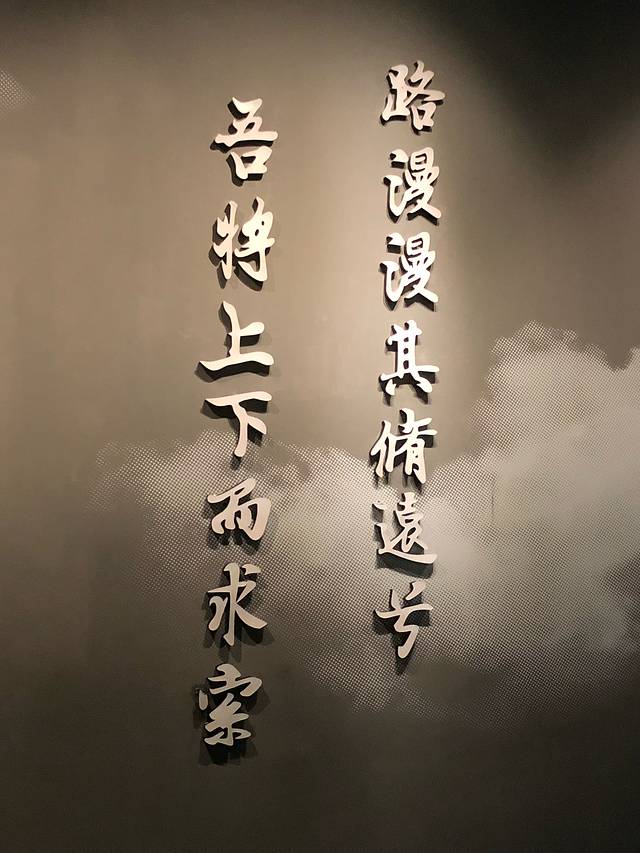 路漫漫其脩遠兮
吾將上下而求索